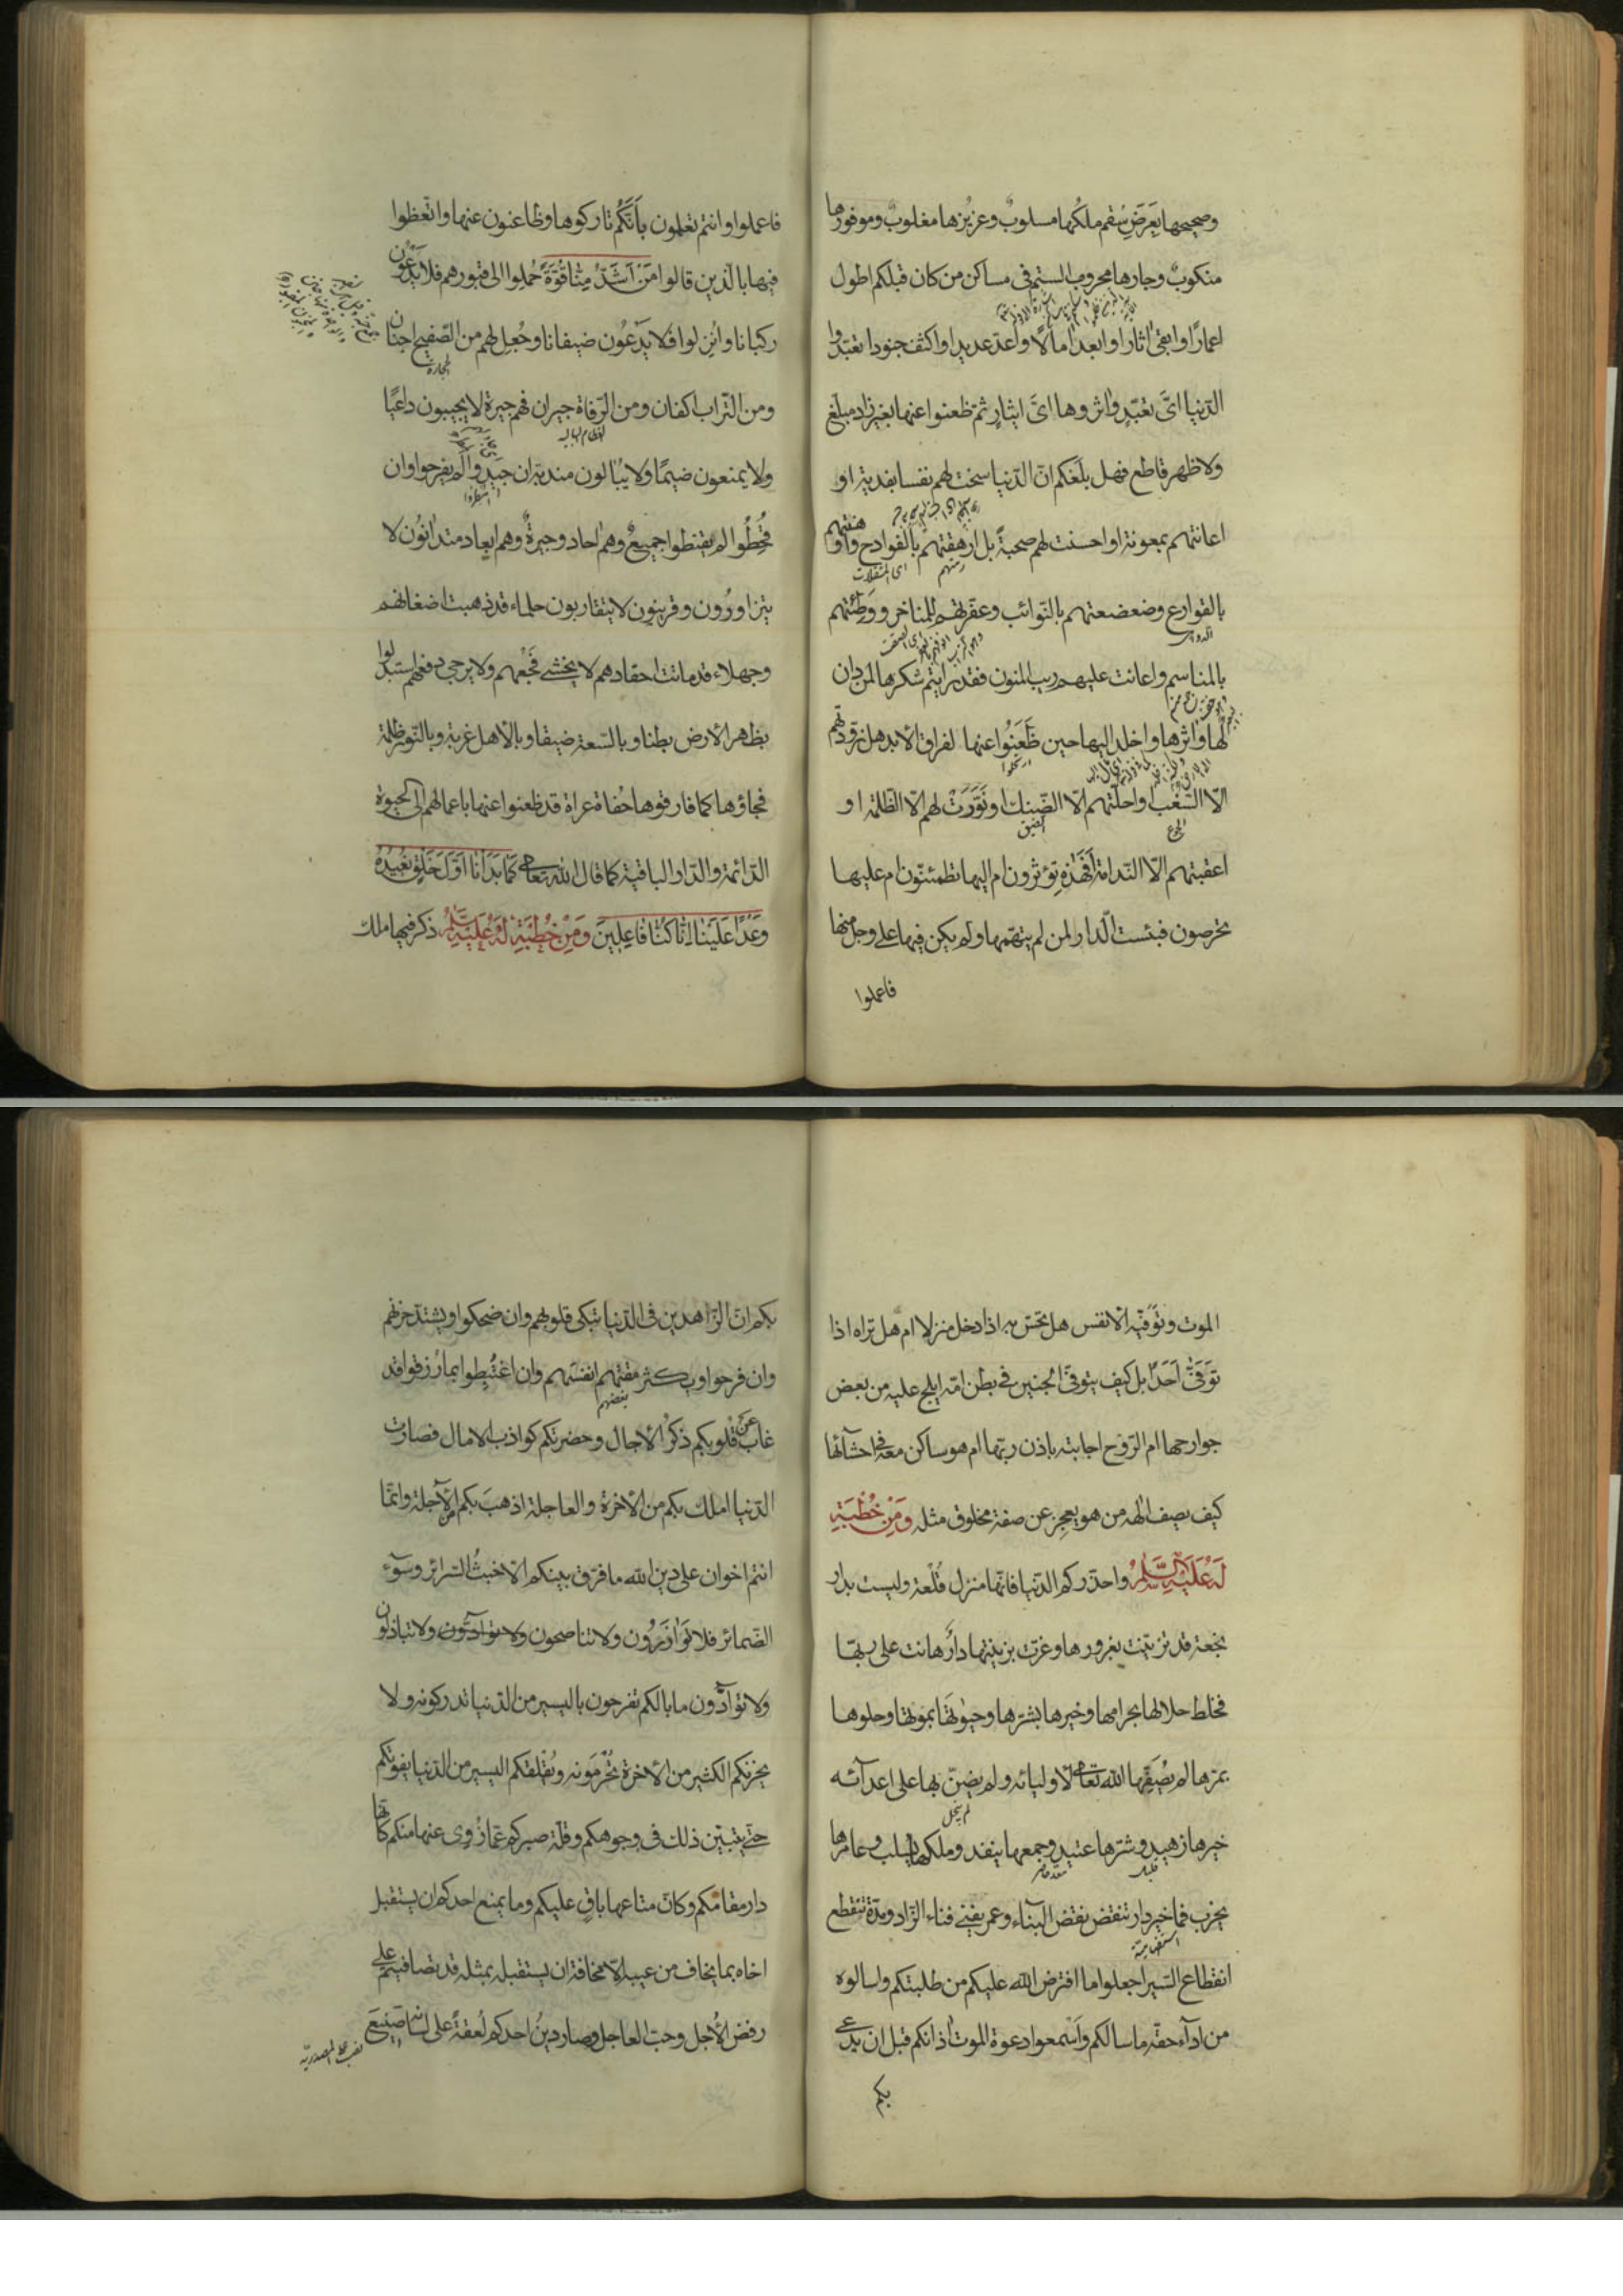 وصحيحها بِعَرَضِ سُقم ملكُها مسلوبٌ وعزيزها مغلوبٌ وموفورها
منكوبٌ وجارها محروب الستم فى مساكن من كان قبلكم اطول
اعمارًا وابقىٰ اثارا وابعد اٰمالًا واعدّ عديدا واكثف جنودا تعبّدوا
الدّنيا اىَّ تعبّدٍ واثروها اىَّ ايثارٍ ثم ظعنوا عنها بغير زاد مبلّغ
ولا ظهر قاطع فهل بلغكم انّ الدّنيا سخت لهم نفسا بفدية او
اعانتهم بمعونة او احسنت لهم صحبةً بل ارهقتهم بالفوادح واوهنتهم
اى المثقلات
بالقوارع وضعضعتهم بالنّوائب وعفّرتهم للمناخر ووَطِئتهم
بالمناسم واعانت عليهم ريب المنون فقد رايتم تنكرها لمن دان
لها واٰثرها واخلد اليها حين ظَعَنُوا عنها لفراق الأبد هل زوّدتهم
الّا السَّغَب او احلّتهم الّا الضّنك او نَوَّرَتْ لهم الّا الظّلمة او
الجوع
الضيق
اعقبتهم الّا النّدامة اَفَهٰذهِ تؤثرون ام اليها تطمئنّون ام عليها
تحرصون فبئست الدّار لمن لم يتهمها ولم يكن فيها على وجل منها
فاعملوا
فاعملوا وانتم تعلمون بِاَنَّكُم تاركوها وظاعنون عنها واتّعظوا
فيها بالّذين قالوا مَنْ اَشَدُّ مِنَّا قُوَّةً حُملوا الى قبورهم فلا يُدْعَوْن
ركبانا واُنزلوا فلا يُدْعَوْن ضيفانا وجُعل لهم من الصّفيح اجنان
الحجارة
ومن التّراب اكفان ومن الرّفاة جيران فهم جيرة لا يجيبون داعيًا
العظام البالية
ولا يمنعون ضيمًا ولا يبالون مندبة ان جيدوا لم يفرحوا وان
قُحِطُوا لم يقنطوا جميعٌ وهم اٰحاد وجيرةٌ وهم ابعاد متدانُون لا
يتزاورُون وقريبون لا يتقاربون حلماء قد ذهبت اضغانهم
وجهلاء قد ماتت احقادهم لا يخشى فَجْعُهم ولا يرجى دفعهم استبدلوا
بظهر الأرض بطنا وبالسّعة ضيقا وبالأهل غربة وبالنّور ظلمة
فجاؤها كما فارقوها حُفاة عراة قد ظعنوا عنها باعمالهم الى الحيوة
الدّائمة والدّار الباقية كما قال الله تعالى كَمَا بَدَأنَا اَوّلَ خَلْقٍ نعُيدُهُ
وَعْدًا عَلَيْنا اِنَّا كنَّا فَاعِلِينَ وَمِنْ خُطْبَةٍ لَهُ عَلَيْهِ السَّلَمُ ذكر فيها ملك
الموت وتَوَفّيه الأنفس هل تحس به اذا دخل منزلا ام هل تراه اذا
تَوَفّىٰ اَحَدًا بل كيف يتوفّىٰ الجنين فى بطن امّه ايلج عليه من بعض
جوارحها ام الرّوح اجابته باذن ربّها ام هو ساكن معه فى احشآئها
كيف يصف اِلٰهه من هو يعجز عن صفة مخلوق مثله وَمِنْ خُطْبَةٍ
لَهُ عَلَيْهِ السَّلَمُ واحذّركم الدّنيا فانّها منزل قُلْعة وليست بدار
نجعة قد تزيّنت بغرورها وغرّت بزينتها دارٌ هانت على ربّها
فخلط حلالها بحرامها وخيرها بشرّها وحيٰوتها بموتها وحلوها
بمرّها لم يُصْفِها الله تعالى لأوليائه ولم يضنّ بها على اعدآئه
لم يبخل
خيرها زهيد وشرّها عتيد وجمعها ينفد وملكها يُسلب وعامرها
قليل
يخرب فما خير دار تنقض نقض البنآء وعمر يفنى فناء الزّاد ومدّة تنقطع
انقطاع السّير اجعلوا ما افترض الله عليكم من طلبتكم واسالوه
من ادآء حقّه ما سالكم وَاَسْمعوا دعوة الموت اٰذانكم قبل ان يدعى
بكم
بكم انّ الزّاهدين فى الدّنيا تبكى قلوبهم وان ضحكوا ويشتدّ حزنهم
وان فرحوا ويكثر مقتهم انفسَهم وان اغتُبِطوا بما رزقوا قد
بغضهم
غاب عن قلوبكم ذكرُ الأجال وحضرتكم كواذب الامال فصارت
الدّنيا املك بكم من الأخرة والعاجلة اذهبَ بكم من الأجلة وانّما
انتم اخوان على دين الله ما فرّق بينكم الّا خبثُ السّرائر وسوٓء
الضّمائر فلا تَوَازَرُون ولا تناصحون ولا توآدّون ولا تباذلون
ولا توآدّون ما بالكم تفرحون باليسير من الدّنيا تدركونه ولا
يحزنكم الكثير من الأخرة تُحْرَمُونه ويُقْلقكم اليسير من الدّنيا يفوتكم
حتّى يتبيّن ذلك فى وجوهكم وقلّة صبركم عمّا زُوِى عنها منكم كانّها
دار مقامكم وكانّ متاعها باقٍ عليكم وما يمنع احدكم ان يستقبل
اخاه بما يخاف من عيبه الّا مخافة ان يستقبله بمثله قد تصافيتم على
رفض الأجل وحبّ العاجل وصار دينُ احدكم لُعقةً على لسانه صَنِيعَ
نصب على المصدريّة